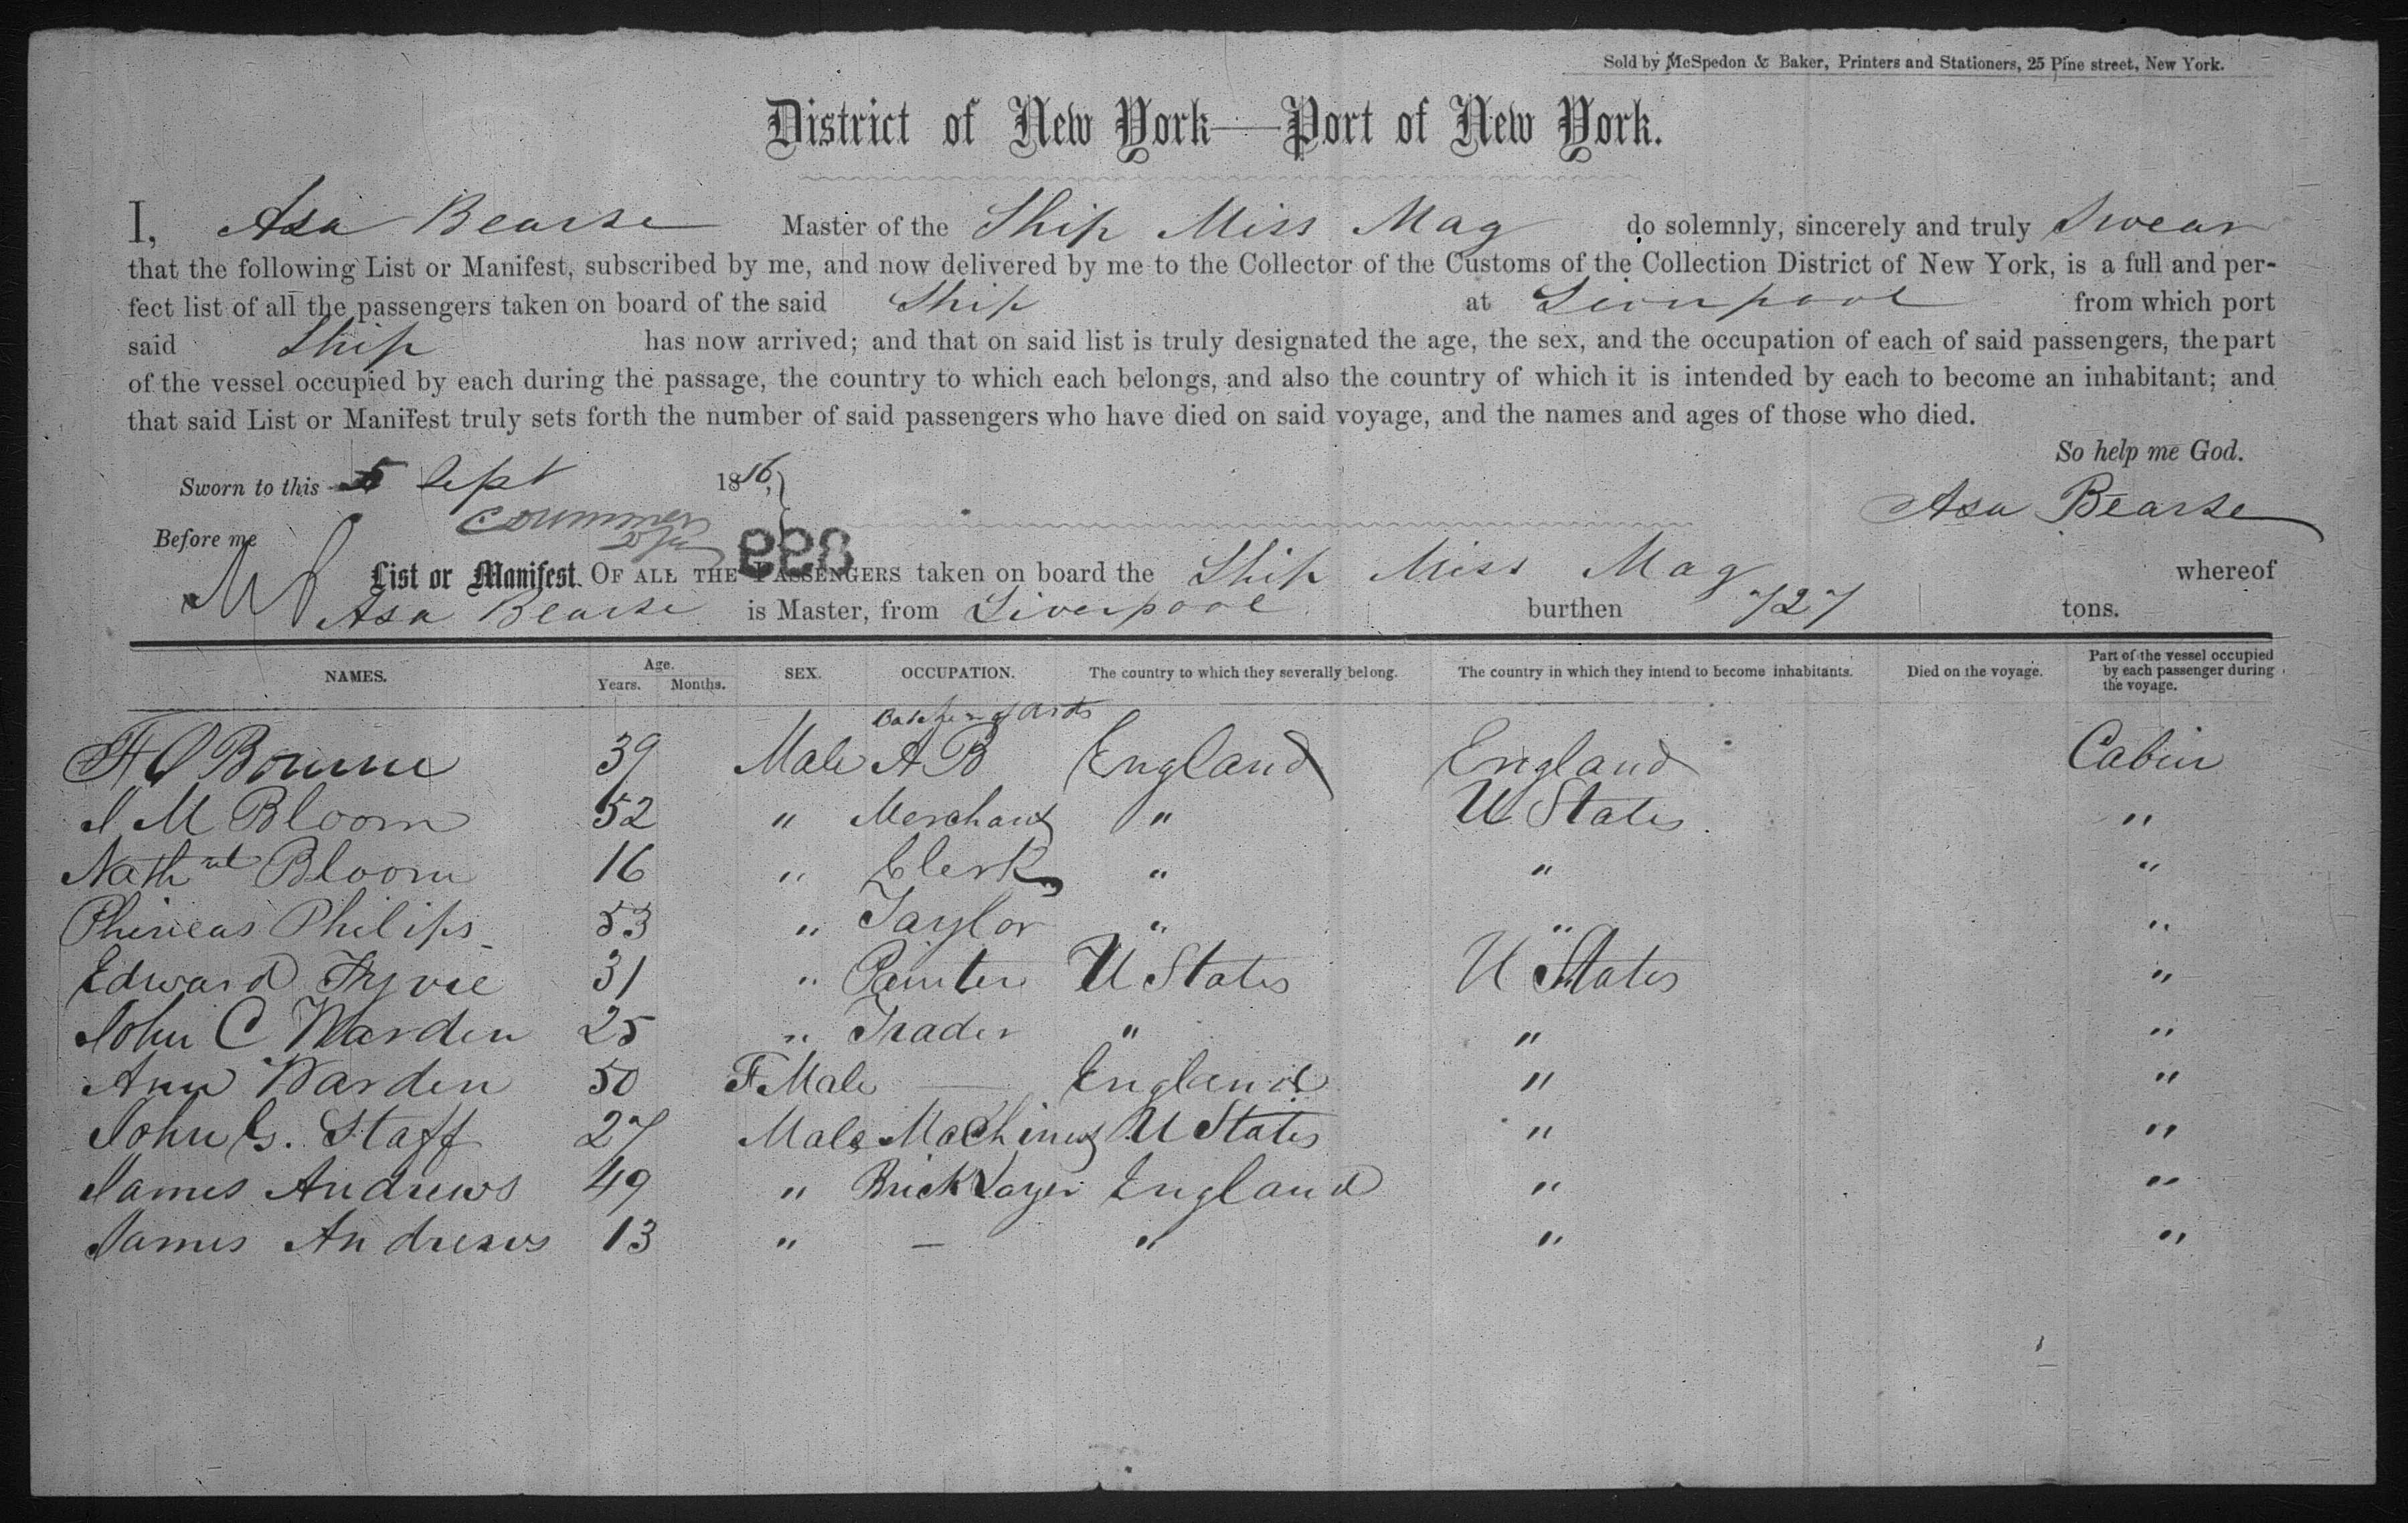 Sold by McSpedon & Baker, Printers and Stationers, 25 Pine street, New York.
District of New York—Port of New York.
I, Asa Bearse Master of the Ship Miss Mag do solemnly, sincerely and truly Swear
that the following List or Manifest, subscribed by me, and now delivered by me to the Collector of the Customs of the Collection District of New York, is a full and per-
fect list of all the passengers taken on board of the said Ship at Liverpool from which port
said Ship has now arrived; and that on said list is truly designated the age, the sex, and the occupation of each of said passengers, the part
of the vessel occupied by each during the passage, the country to which each belongs, and also the country of which it is intended by each to become an inhabitant; and
that said List or Manifest truly sets forth the number of said passengers who have died on said voyage, and the names and ages of those who died.
So help me God.
Sworn to this 5 Sept 18
Asa Bearse
Before me
899
List or Manifest. OF ALL THE PASSENGERS taken on board the Ship Miss Mag whereof
Asa Bearse is Master, from Liverpool burthen 727 tons.
NAMES. Age. Years. Months. SEX. OCCUPATION. The country to which they severally belong. The country in which they intend to become inhabitants. Died on the voyage. Part of the vessel occupied by each passenger during the voyage.
Batchr of Arts
F O Bourne 39 Male A B England England Cabin
I M Bloom 52 " Merchant " U States "
Nathnl Bloom 16 " Clerk " " "
Phineas Philips 53 " Taylor " " "
Edward Fyvie 31 " Painter U States U States "
John C Warden 25 " Trader " " "
Ann Warden 50 F Male — England " "
John G. Staff 27 Male Machinest U States " "
James Andrews 49 " Brick Layer England " "
James Andrews 13 " — " " "